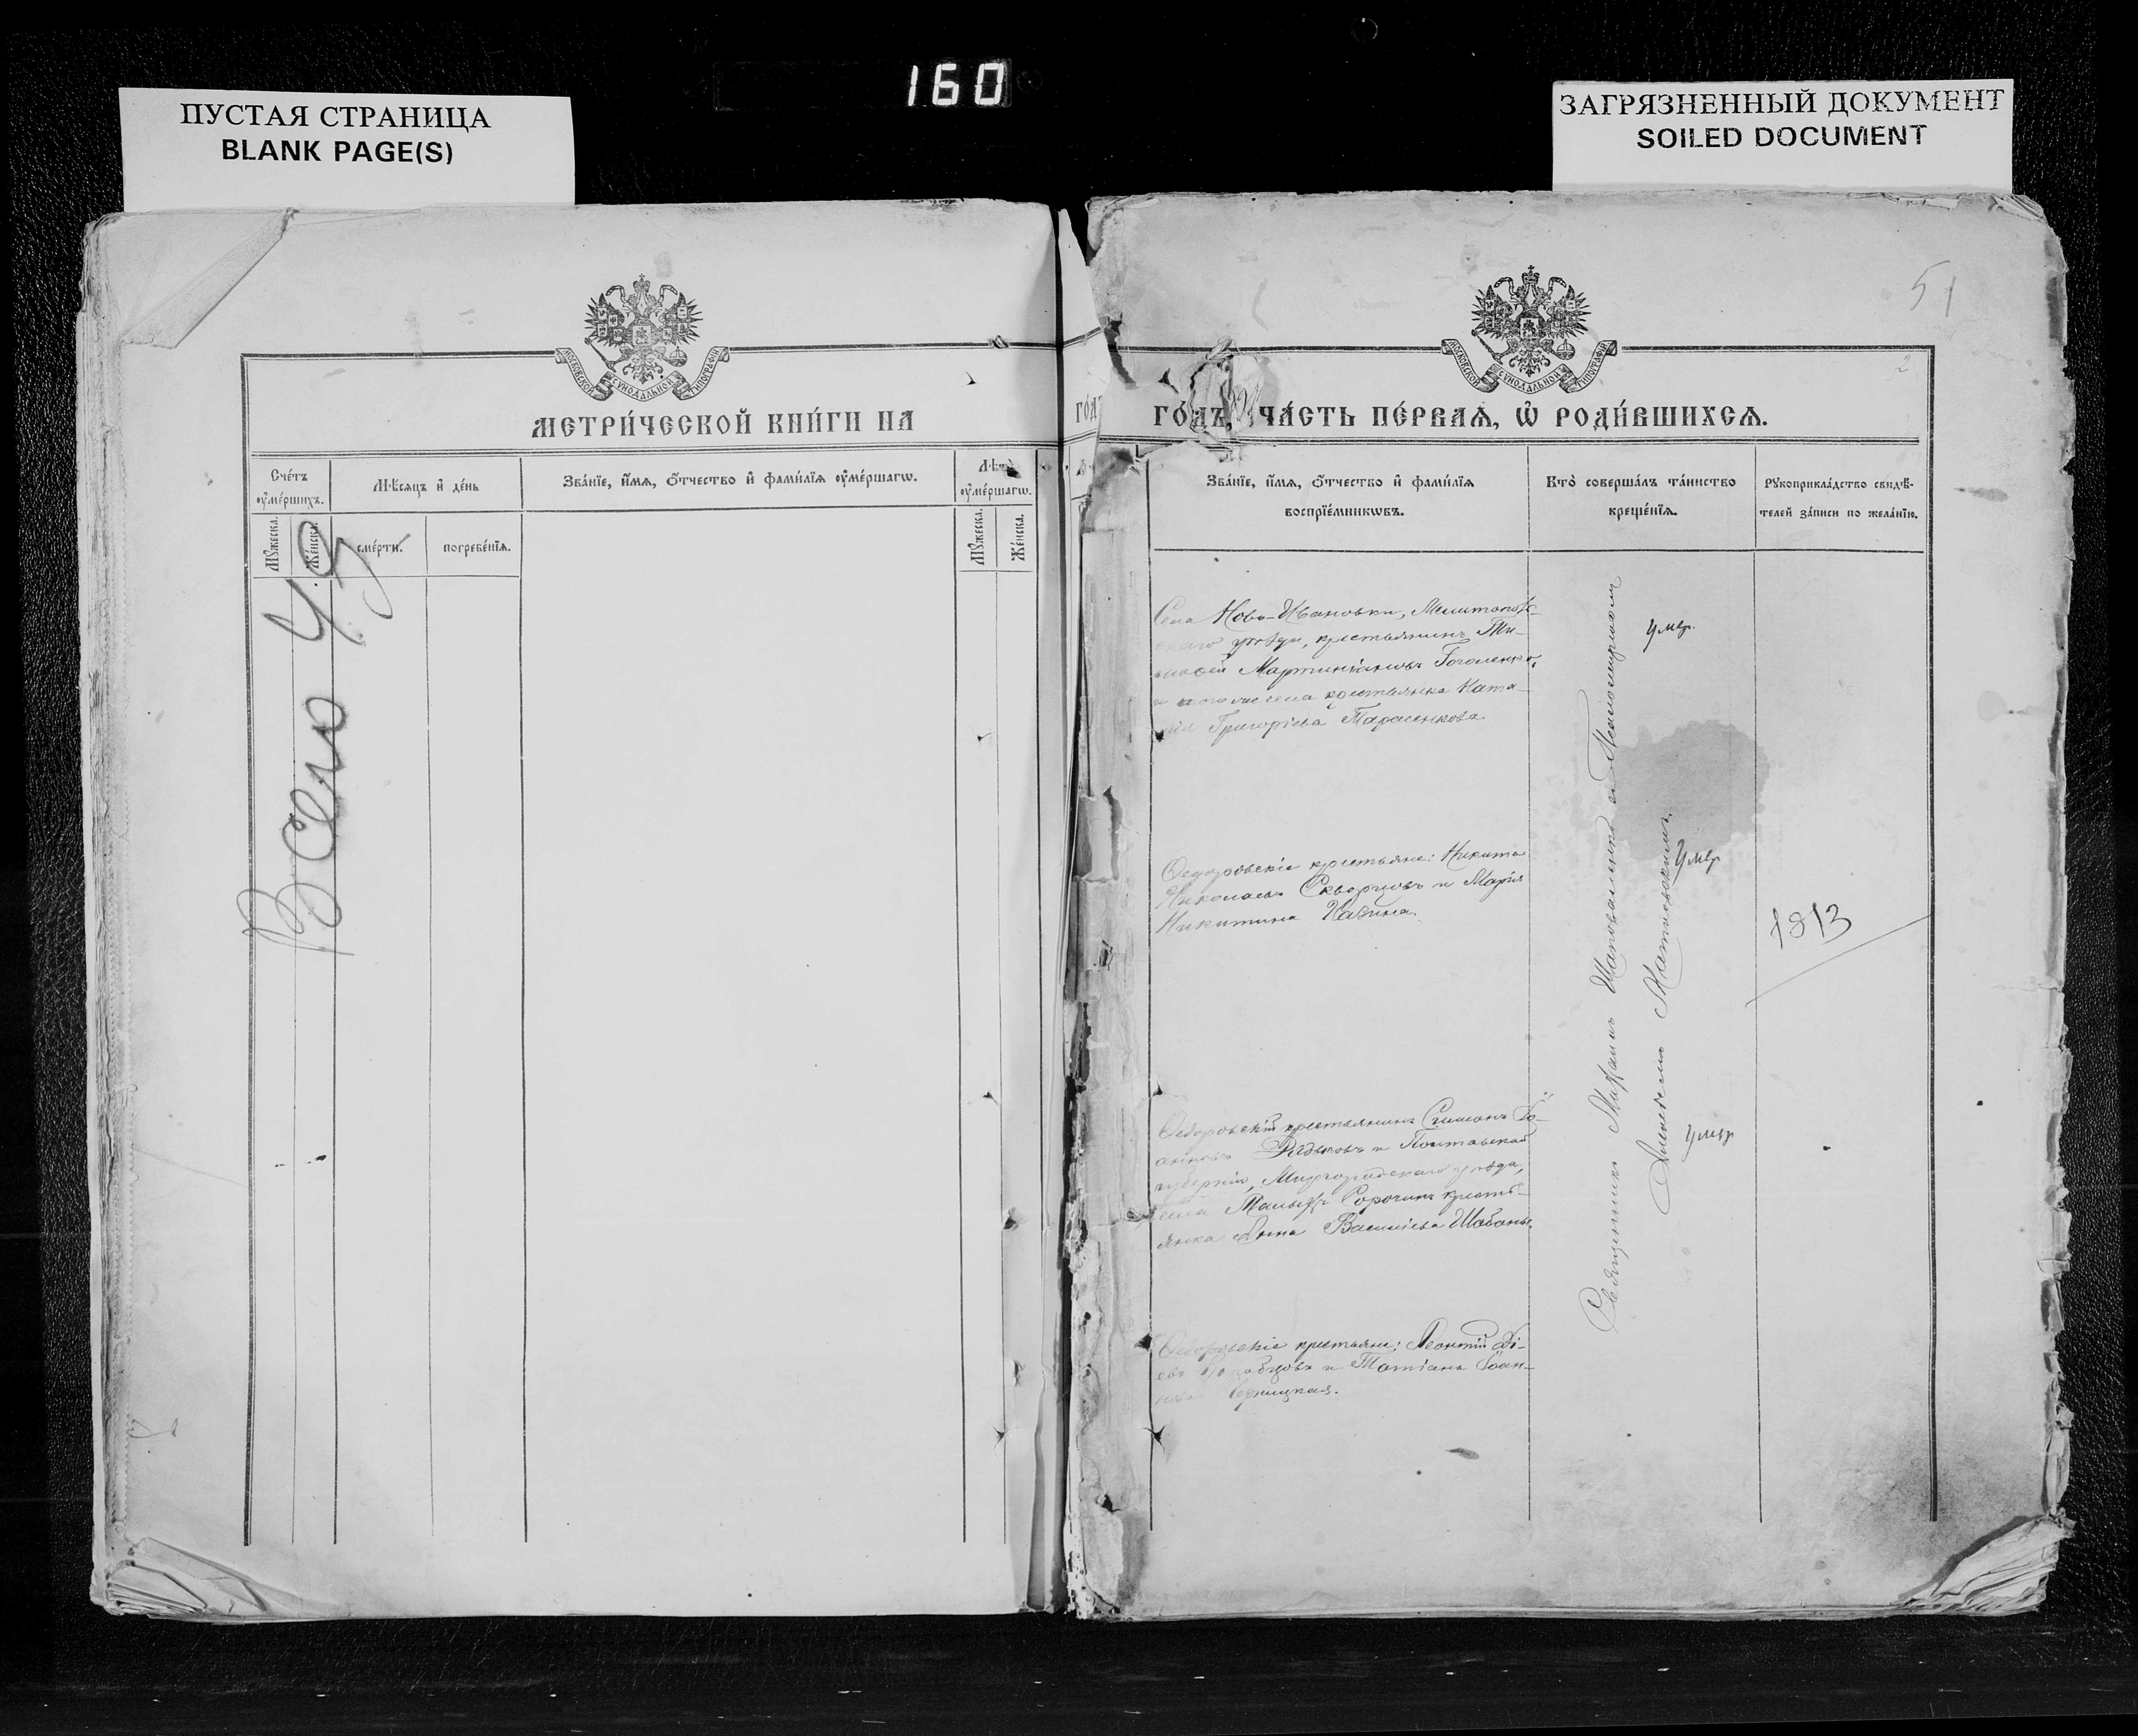 160
ПУСТАЯ СТРАНИЦА
BLANK PAGE(S)
ЗАГРЯЗНЕННЫЙ ДОКУМЕНТ
SOILED DOCUMENT
МОСКОВСКОЙ СѴНОДАЛЬНОЙ ТИПОГРАФІИ
МЕТРИ́ЧЕСКОЙ КНИ́ГИ НА
Сче́тъ ᲂу҆ме́ршихъ.
Мѣ́сяцъ и҆ де́нь
Зва́нїе, и҆́мѧ, ѻ҆́тчество и҆ фами́лїѧ ᲂу҆ме́ршагѡ.
Лѣ́та ᲂу҆ме́ршагѡ.
Мꙋ́жеска.
Же́нска.
сме́рти.
погребе́нїѧ.
Мꙋ́жеска.
Же́нска.
Всего 49
51
2
МОСКОВСКОЙ СѴНОДАЛЬНОЙ ТИПОГРАФІИ
ГО́ДЪ, ЧА́СТЬ ПЕ́РВАѦ, Ѡ҆ РОДИ́ВШИХСѦ.
Зва́нїе, и҆́мѧ, ѻ҆́тчество и҆ фами́лїѧ
воспрїе́мникѡвъ.
Кто̀ соверша́лъ та́инство
креще́нїѧ.
Рꙋкоприкла́дство свидѣ́-
телей за́писи по жела́нїю.
Села Ново-Ивановки, Мелитополь-
скаго уѣзда, крестьянинъ Ти-
мофей Мартиніановъ Гоголенко,
и того же села крестьянка Ната-
лія Григоріева Тарасенкова.
Ѳедоровскіе крестьяне: Никита
Николаевъ Скворцовъ и Марія
Никитина
Ѳедоровскій крестьянинъ Симонъ Іо-
анновъ и Полтавской
губерніи, Миргородскаго уѣзда,
села Сорочинъ кресть-
янка Анна Василіева
Ѳедоровскіе крестьяне: Леонтій
и Татіана Іоан-
нова
Священникъ Михаилъ Шаповаленко съ Псаломщикомъ
Алексѣемъ
умер.
умер
умер
1813